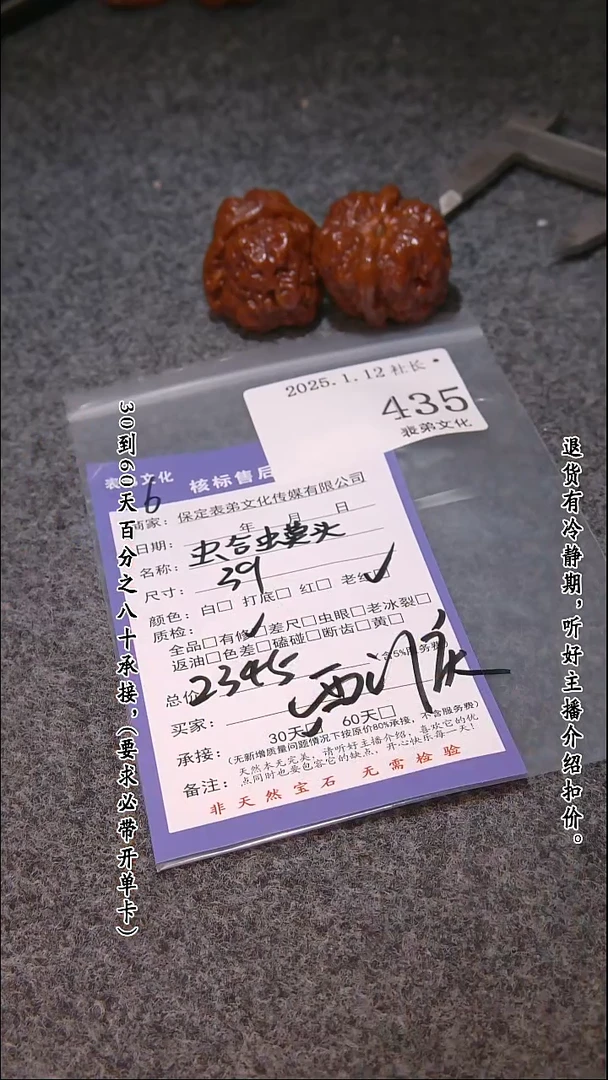 2025.1.12社长
435
表弟文化
表 文化 核标售后
6
商家：保定表弟文化传媒有限公司
日期： 年 月 日
名称：
尺寸：39
颜色：白□ 打底□ 红□ 老红□
质检：
全品□有修□差尺□虫眼□老冰裂□
返油□色差□磕碰□断齿□黄□
总价 2345 含5%服务费)
买家：
承接： 30天□ 60天□
(无新增质量问题情况下按原价80%承接，不含服务费)
备注：天然本无完美，请听好主播介绍，喜欢它的优
点同时也要包容它的缺点，开心快乐每一天！
非天然宝石 无需检验
30到60天百分之八十承接，(要求必带开单卡)
退货有冷静期，听好主播介绍扣价。